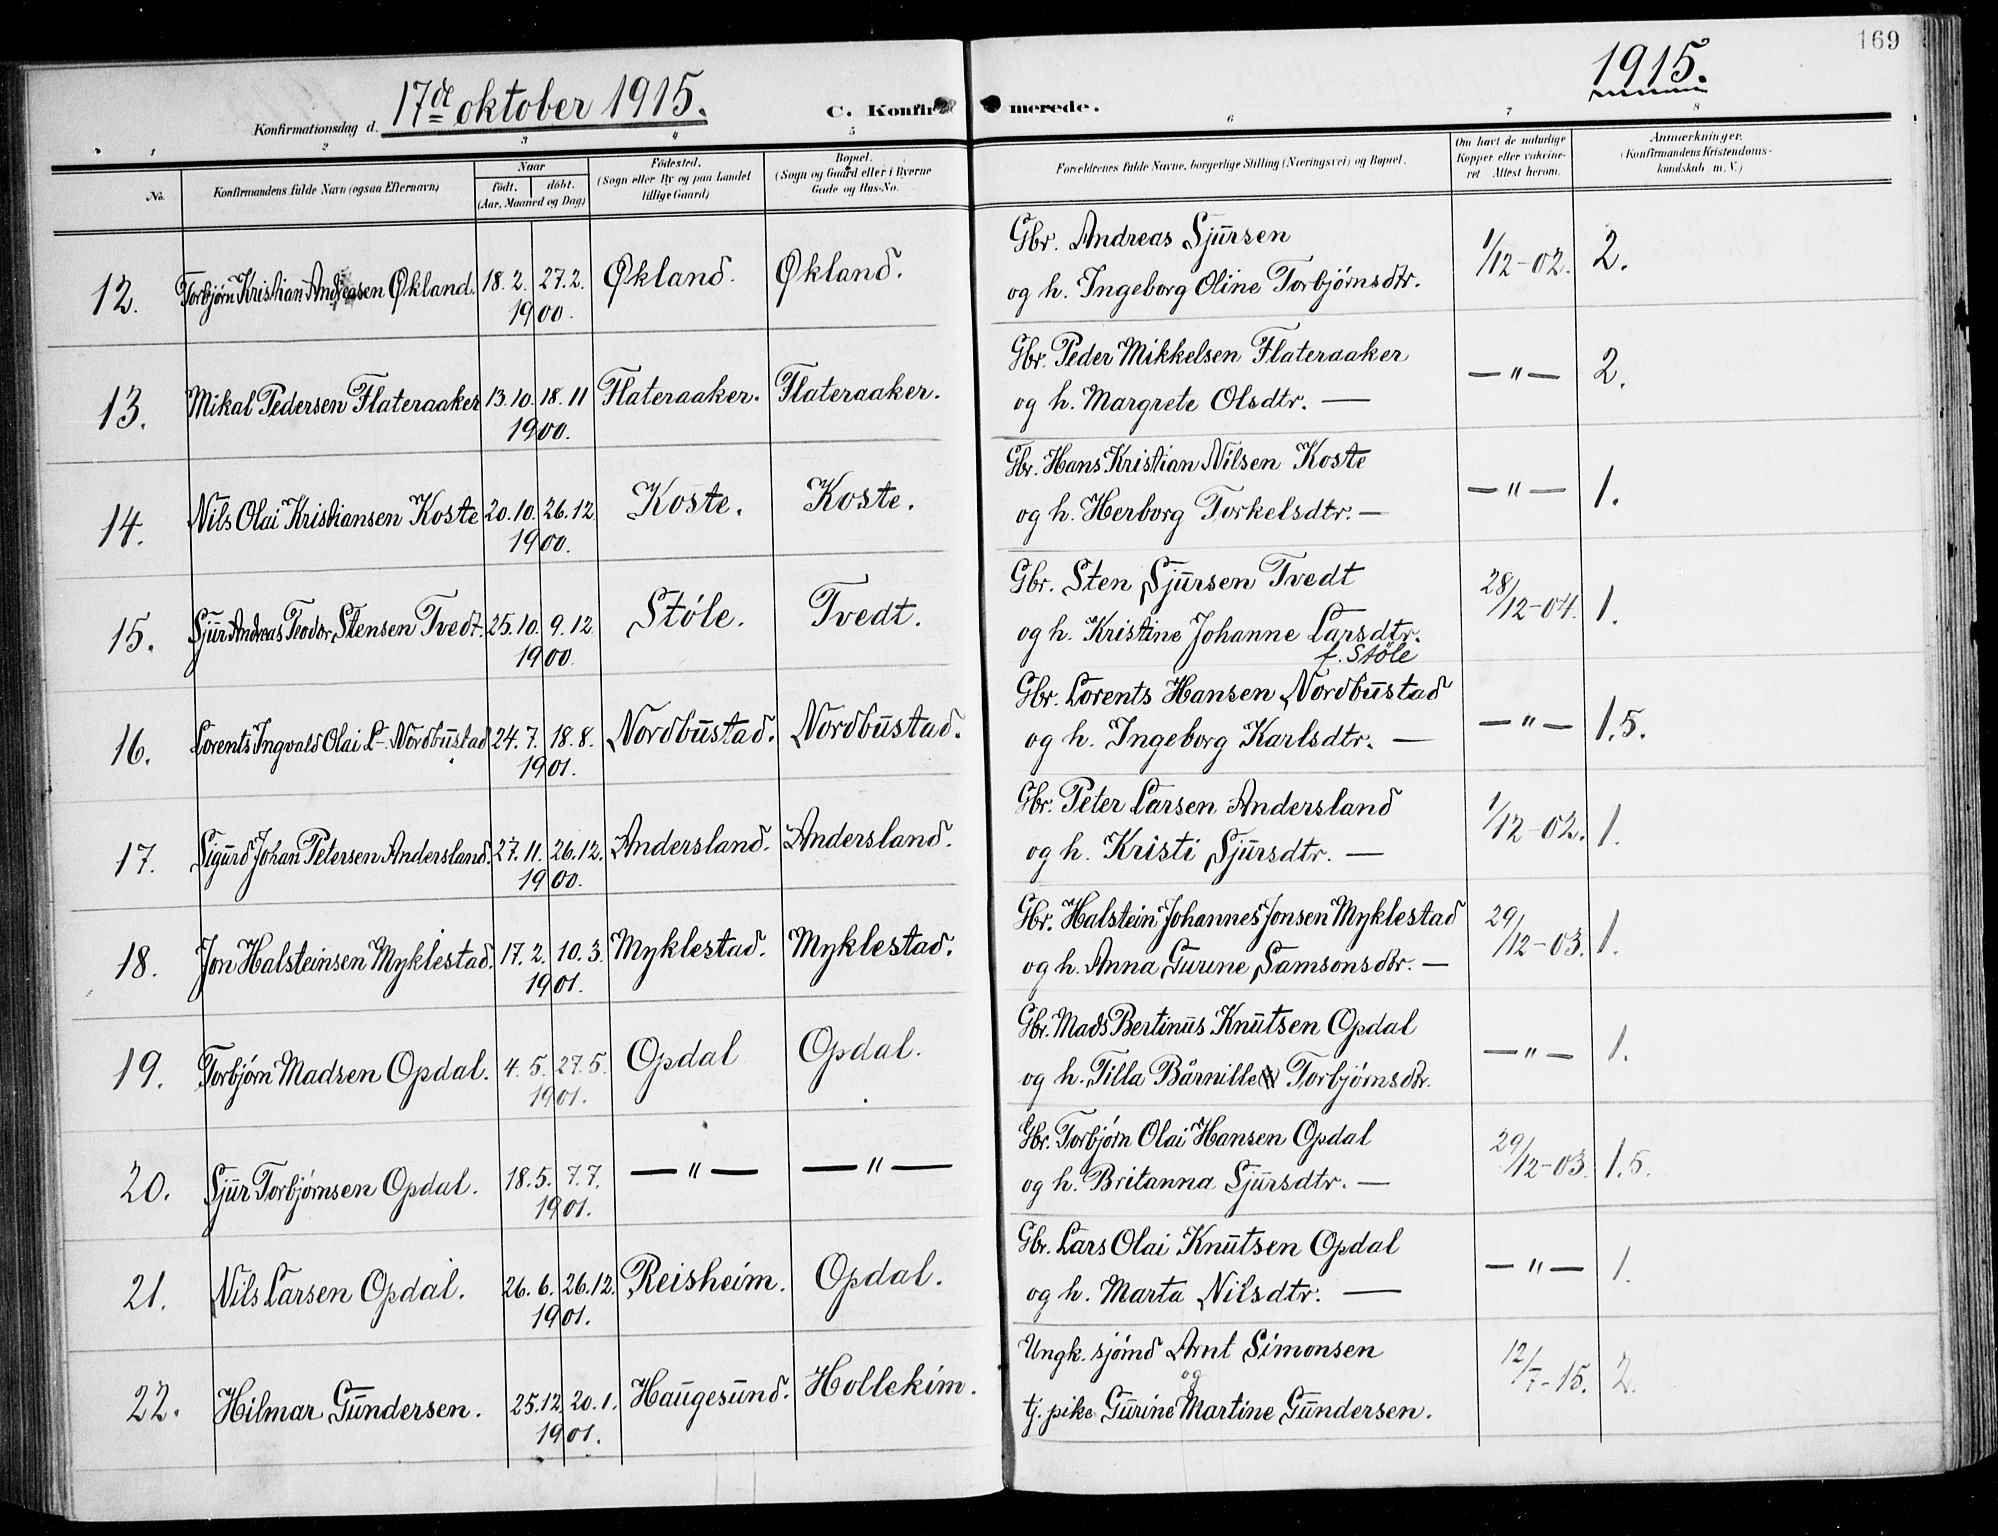 169
1915.
Konfirmationsdag d. 17de oktober 1915. C. Konfirmerede.
1 2 3 4 5 6 7 8
No. Konfirmandens fulde Navn (ogsaa Efternavn) Naar født. døbt. (Aar, Maaned og Dag) Fødested. (Sogn eller By og paa Landet tillige Gaard) Bopæl. (Sogn og Gaard eller i Byerne Gade og Hus-No. Forældrenes fulde Navne, borgerlige Stilling (Næringsvei) og Bopæl. Om havt de naturlige Kopper eller vakcineret. Attest herom. Anmærkninger. (Konfirmandens Kristendomskundskab m. V.)
12. Torbjørn Kristian Andreasen Økland. 18. 2. 27. 2. 1900. Økland. Økland. Gbr. Andreas Sjursen 1/12-02. 2.
og h. Ingeborg Oline Torbjørnsdtr.
13. Mikal Pedersen Flateraaker 13. 10. 18. 11 1900. Flateraaker. Flateraaker. Gbr. Peder Mikkelsen Flateraaker — " — 2.
og h. Margrete Olsdtr. —
14. Nils Olai Kristiansen Koste 20. 10. 26. 12. 1900. Koste. Koste. Gbr. Hans Kristian Nilsen Koste — " — 1.
og h. Herborg Torkelsdtr. —
15. Sjur Andreas Teodor Stensen Tvedt. 25. 10. 9. 12. 1900. Støle. Tvedt. Gbr. Sten Sjursen Tvedt 28/12-04. 1.
og h. Kristine Johanne Larsdtr.
f. Støle
16. Lorents Ingvald Olai L- Nordbustad 24. 7. 18. 8. 1901. Nordbustad. Nordbustad. Gbr. Lorents Hansen Nordbustad — " — 1.5.
og h. Ingeborg Karlsdtr. —
17. Sigurd Johan Petersen Andersland. 27. 11. 26. 12. 1900. Andersland. Andersland. Gbr. Peter Larsen Andersland 1/12-02. 1.
og h. Kristi Sjursdtr. —
18. Jon Halsteinsen Myklestad. 17. 2. 10. 3. 1901. Myklestad. Myklestad. Gbr. Halstein Johannes Jonsen Myklestad 29/12-03. 1.
og h. Anna Gurine Samsonsdtr. —
19. Torbjørn Madsen Opdal. 4. 5. 27. 5. 1901. Opdal Opdal. Gbr. Mads Bertinus Knutsen Opdal — " — 1.
og h. Tilla Bårnille Torbjørnsdtr.
20. Sjur Torbjørnsen Opdal. 18. 5. 7. 7. 1901. — " — — " — Gbr. Torbjørn Olai Hansen Opdal 29/12-03. 1.5.
og h. Britanna Sjursdtr. —
21. Nils Larsen Opdal. 26. 6. 26. 12. 1901. Reisheim. Opdal. Gbr. Lars Olai Knutsen Opdal — " — 1.
og h. Marta Nilsdtr. —
22. Hilmar Gundersen. 25. 12. 20. 1. 1901. Haugesund. Hollekim. Ungk. sjømd Arnt Simonsen 12/7-15. 2.
og
tj. pike Gurine Martine Gundersen.